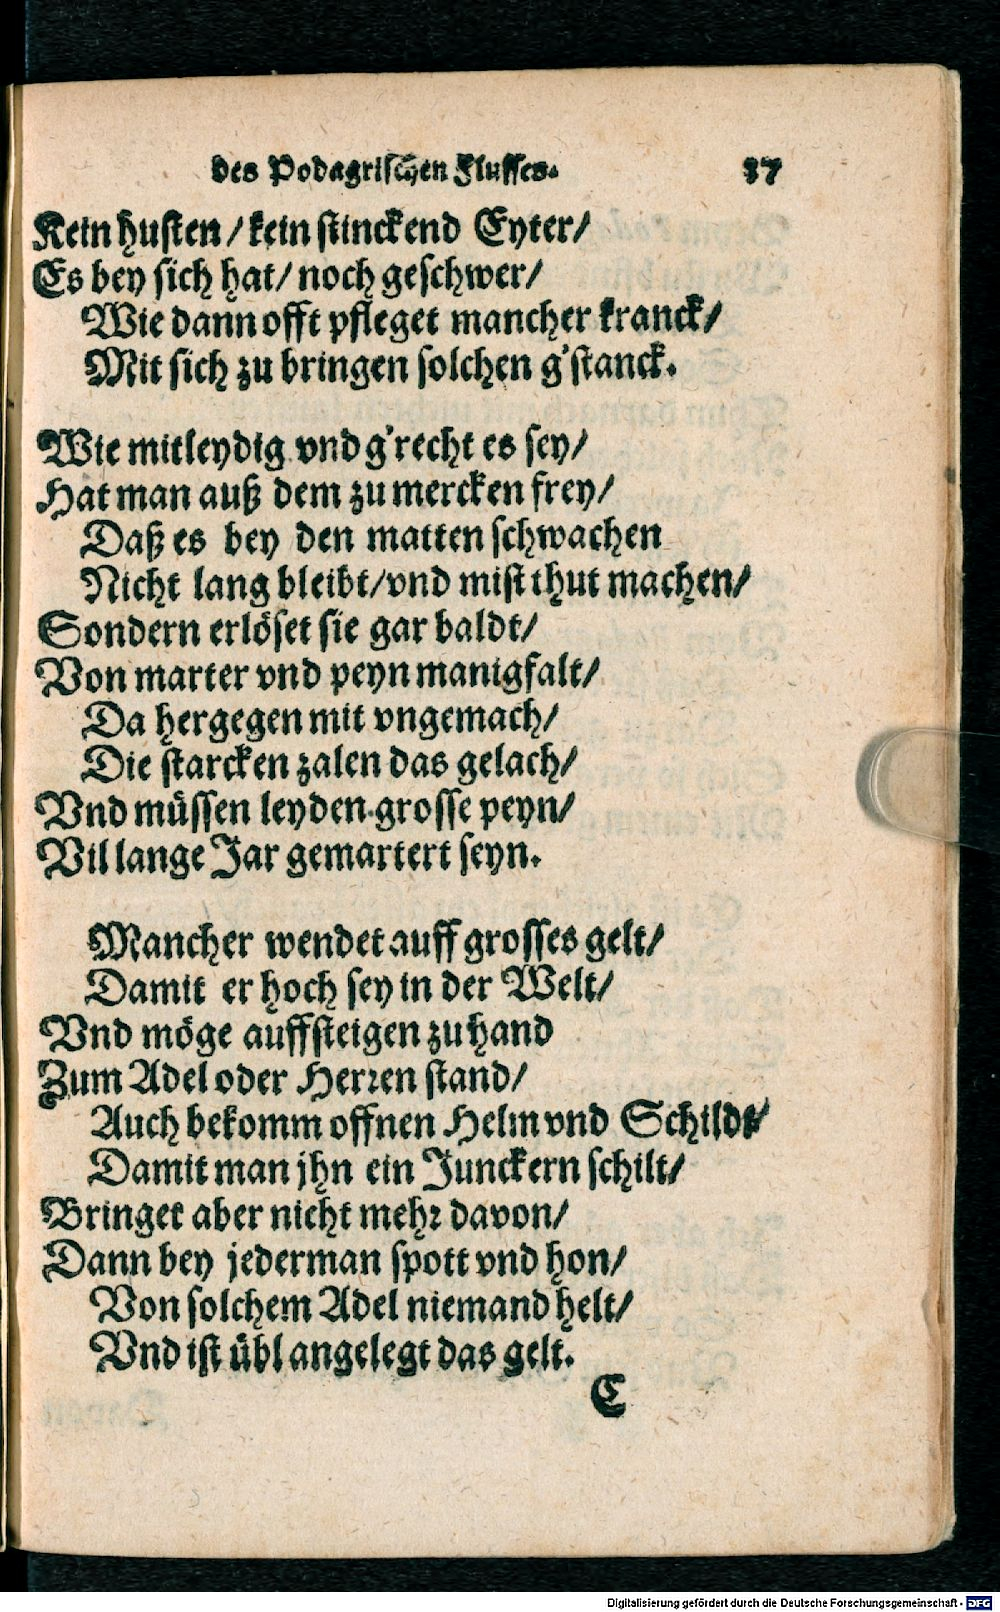 des Podagrischen Flusses. 37
Kein husten / kein stinckend Eyter /
Es bey sich hat / noch geschwer /
Wie dann offt pfleget mancher kranck /
Mit sich zu bringen solchen g'stanck.
Wie mitleydig vnd g'recht es sey /
Hat man auß dem zu mercken frey /
Daß es bey den matten schwachen
Nicht lang bleibt / vnd mist thut machen /
Sondern erlöset sie gar baldt /
Von marter vnd peyn manigfalt /
Da hergegen mit vngemach /
Die starcken zalen das gelach /
Vnd müssen leyden grosse peyn /
Vil lange Jar gemartert seyn.
Mancher wendet auff grosses gelt /
Damit er hoch sey in der Welt /
Vnd möge auffsteigen zu hand
Zum Adel oder Herꝛen stand /
Auch bekomm offnen Helm vnd Schildt /
Damit man jhn ein Junckern schilt /
Bringet aber nicht mehꝛ davon /
Dann bey jederman spott vnd hon /
Von solchem Adel niemand helt /
Vnd ist übl angelegt das gelt.
C
Digitalisierung gefördert durch die Deutsche Forschungsgemeinschaft - DFG